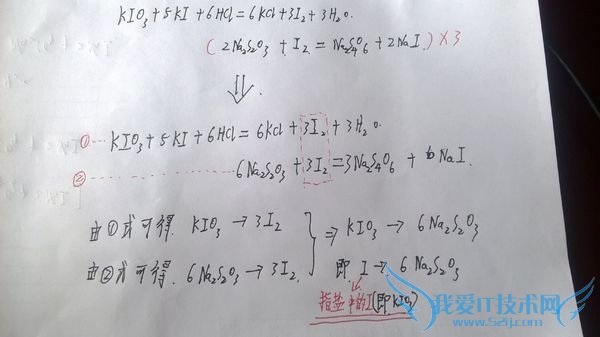 KIO₃+5KI+6HCl=6KCl+3I₂+3H₂O.
(2Na₂S₂O₃+I₂=Na₂S₄O₆+2NaI)×3
⇓
①…KIO₃+5KI+6HCl=6KCl+3I₂+3H₂O.
②…6Na₂S₂O₃+3I₂=3Na₂S₄O₆+6NaI.
由①式可得. KIO₃→3I₂
由②式可得. 6Na₂S₂O₃→3I₂.
⇒KIO₃→6Na₂S₂O₃
即. I→6Na₂S₂O₃
指盐中的I(即KIO₃)
我爱IT技术网
www.52ij.com